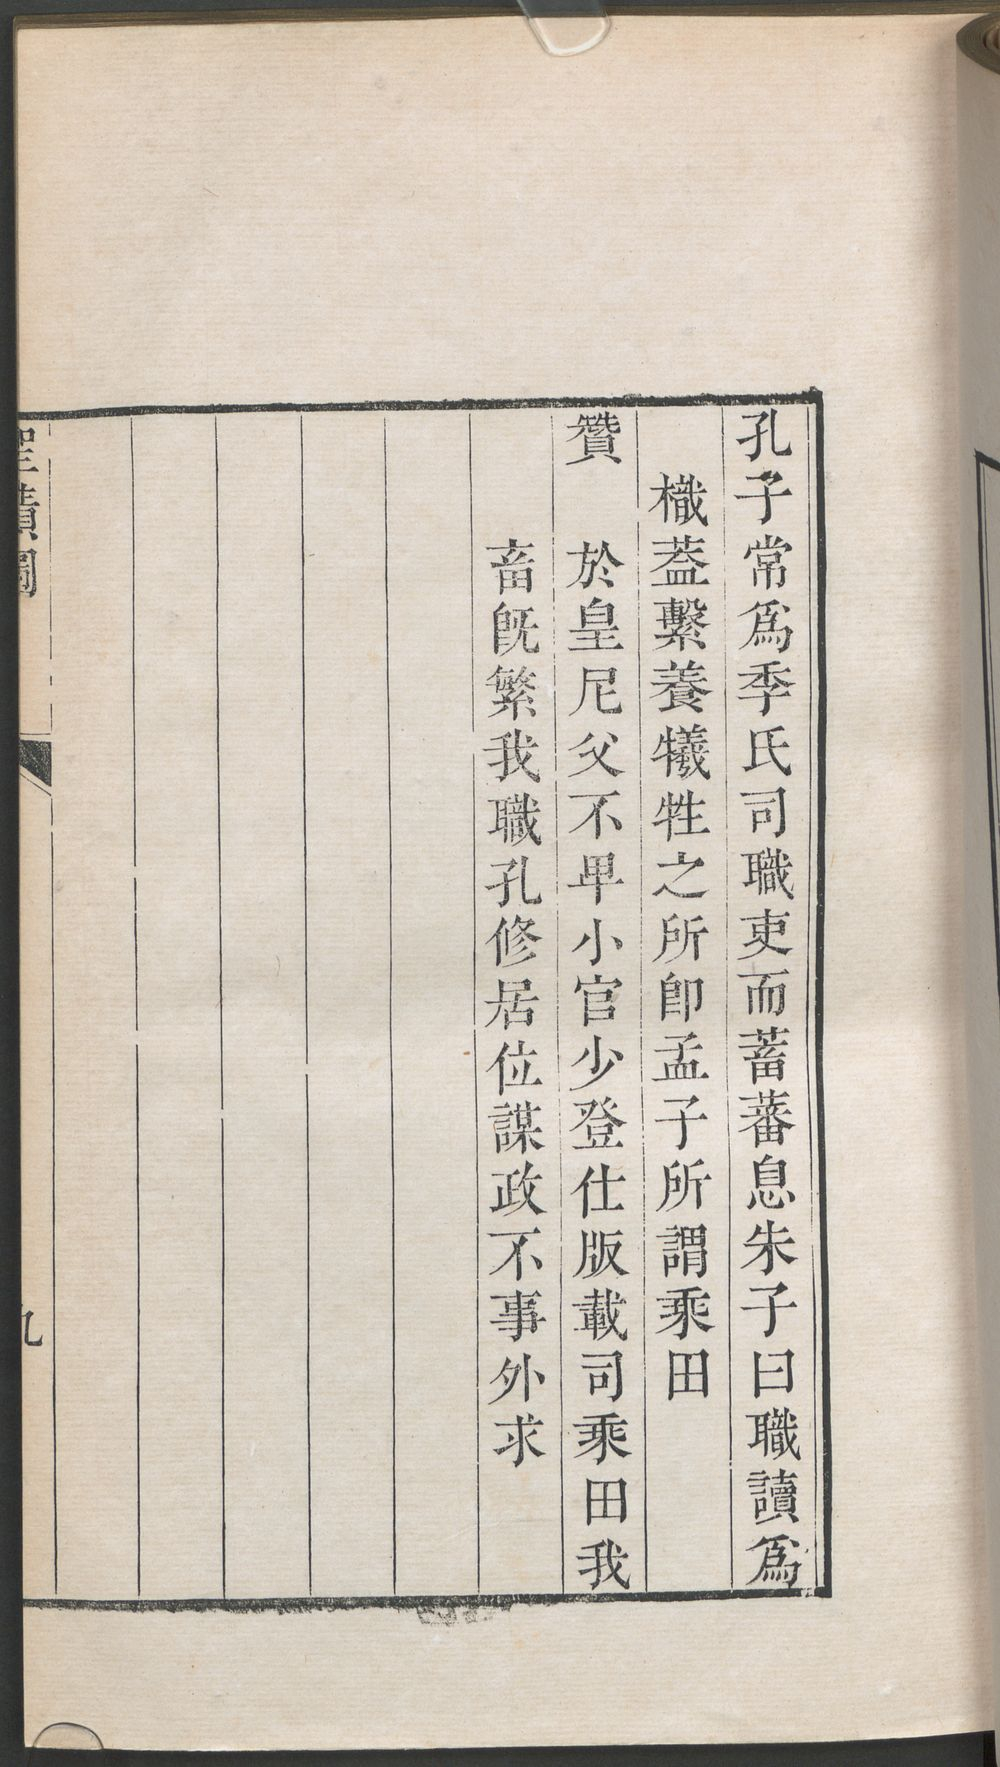 孔子常爲季氏司職吏而蓄蕃息朱子曰職讀爲
樴葢繫養犧牲之所卽孟子所謂乘田
贊　於皇尼父不卑小官少登仕版載司乘田我
畜旣繁我職孔修居位謀政不事外求
聖蹟圖
九